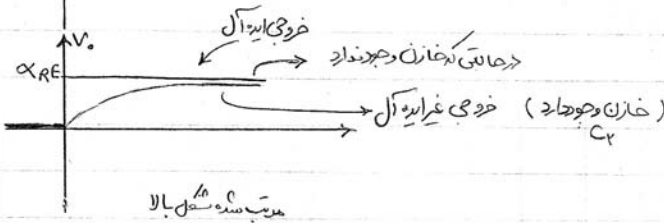 V₀
خروجی ایده آل
αRE
در حالتی که خازن وجود ندارد
خروجی غیر ایده آل ( خازن وجود دارد )
C₂
مرتب شده شکل بالا